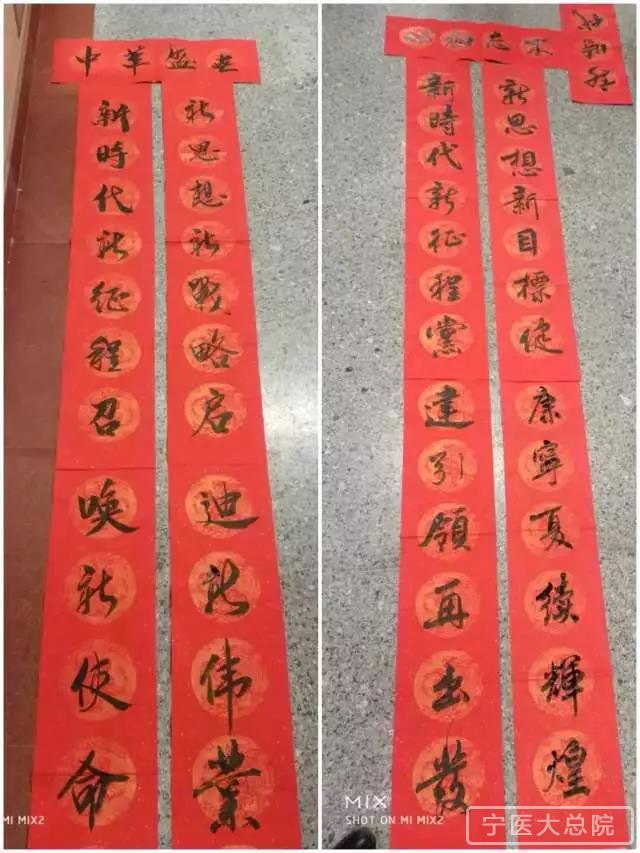 中華盛世
新時代新征程召唤新使命
新思想新戰略启迪新伟業
不忘初心
新時代新征程黨建引領再出發
新思想新目標健康寧夏續輝煌
MI MIX2
MIX
SHOT ON MI MIX2
宁医大总院